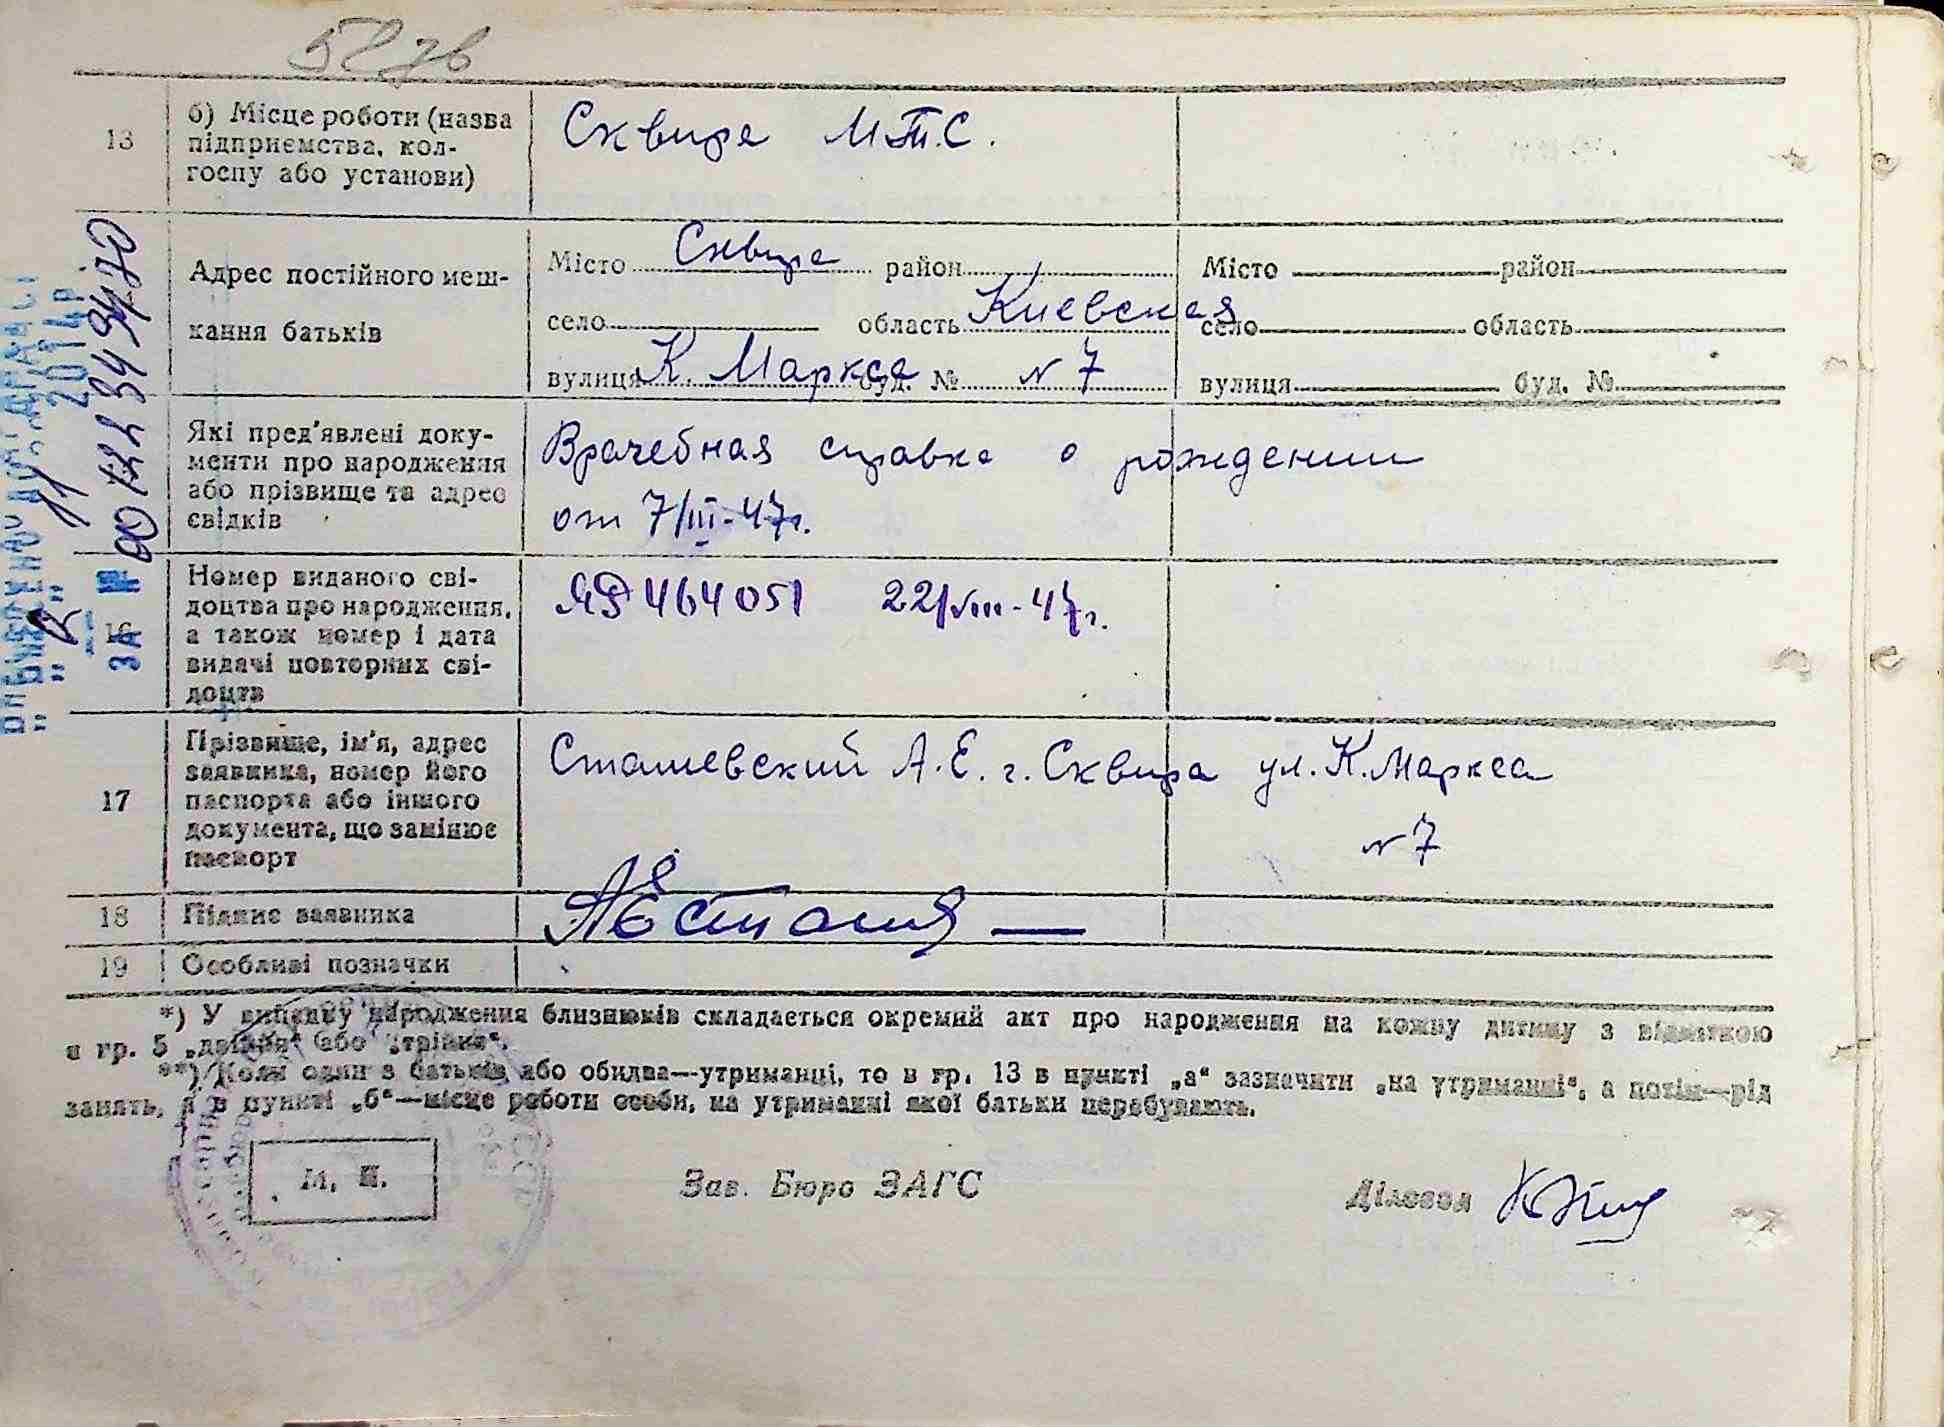 13 б) Місце роботи (назва підприємства, кол-
госпу або установи) Сквира М.Т.С.
Адрес постійного меш-
кання батьків
Місто Сквира район
село область Киевская
вулиця К. Маркса буд. № N 7
Місто район
село область
вулиця буд. №
Які пред'явлені доку-
менти про народження
або прізвище та адрес
свідків
Врачебная справка о рождении
от 7/III-47г.
16 Номер виданого сві-
доцтва про народження,
а також номер і дата
видачі повторних сві-
доцтв
464051 22/VIII-47г.
17 Прізвище, ім'я, адрес
заявника, номер його
паспорта або іншого
документа, що замінює
паспорт
Сташевский А.Е. г. Сквира ул. К. Маркса
N 7
18 Підпис заявника
19 Особливі позначки
*) У випадку народження близнюків складається окремий акт про народження на кожну дитину з відміткою
в гр. 5 „двійня“ або „трійня“.
**) Коли один з батьків або обидва—утриманці, то в гр. 13 в пункті „а“ зазначити „на утриманні“, а потім—рід
занять, а в пункті „б“—місце роботи особи, на утриманні якої батьки перебувають.
М. П.
Зав. Бюро ЗАГС
Діловод
2014р.
ЗА № 00122349470